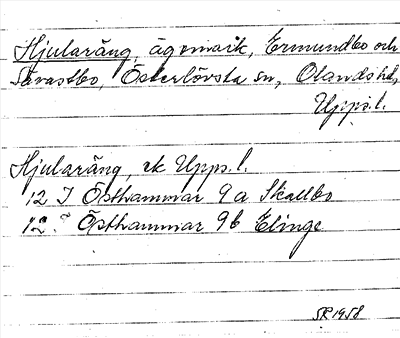 Hjularäng, ägomark, Ermundbo och
Sävastbo, Österlövsta sn, Olands hd,
Upps. l.
Hjularäng, ek Upps. l.
12 I Östhammar 9 a Skallbo
12 I Östhammar 9 b Elinge
SR 1958